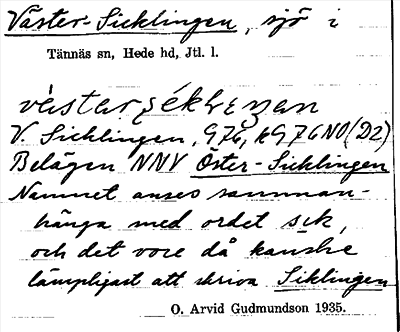 Väster-Sicklingen, sjö i
Tännäs sn, Hede hd, Jtl. l.
V Sicklingen, G76, kG76NO(D2)
Belägen NNV Öster-Sicklingen
Namnet anses samman-
hänga med ordet sik,
och det vore då kanske
lämpligast att skriva Siklingen
O. Arvid Gudmundson 1935.